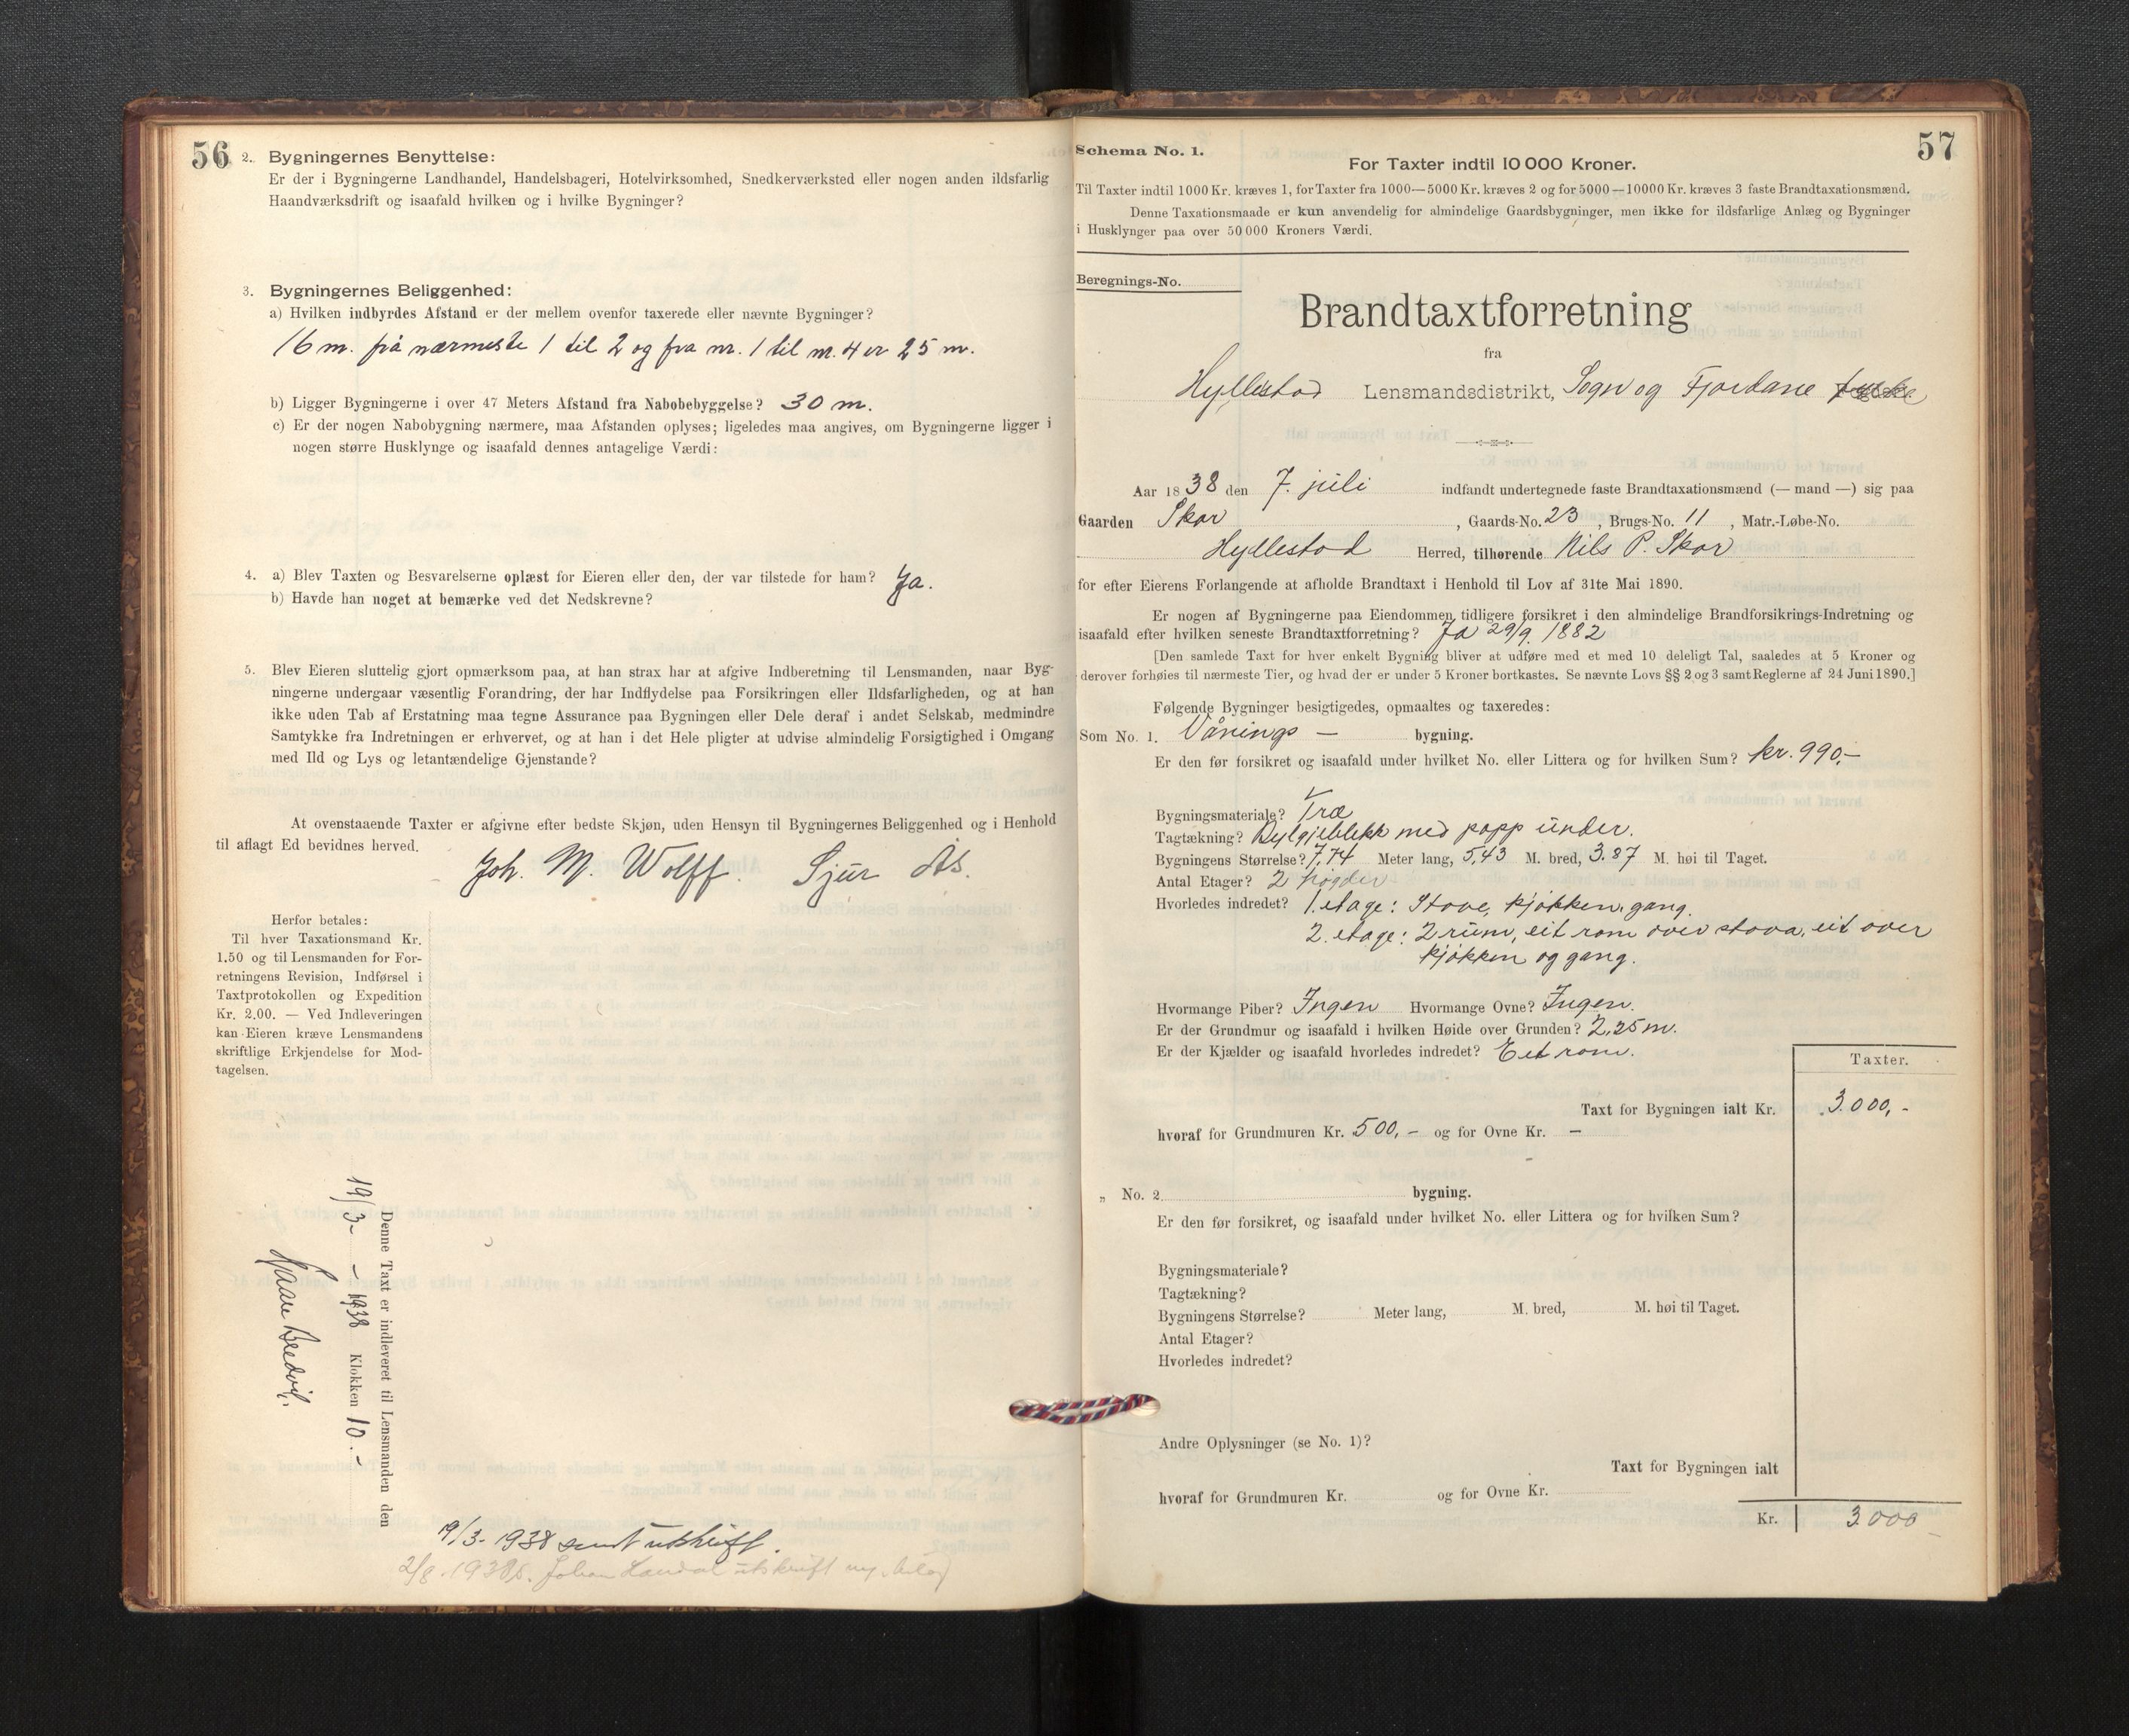 56
2. Bygningernes Benyttelse:
Er der i Bygningerne Landhandel, Handelsbageri, Hotelvirksomhed, Snedkerværksted eller nogen anden ildsfarlig
Haandværksdrift og isaafald hvilken og i hvilke Bygninger?
3. Bygningernes Beliggenhed:
a) Hvilken indbyrdes Afstand er der mellem ovenfor taxerede eller nævnte Bygninger?
16 m. frå nærmeste 1 til 2 og fra nr. 1 til nr. 4 er 25 m.
b) Ligger Bygningerne i over 47 Meters Afstand fra Nabobebyggelse? 30 m.
c) Er der nogen Nabobygning nærmere, maa Afstanden oplyses; ligeledes maa angives, om Bygningerne ligger i
nogen større Husklynge og isaafald dennes antagelige Værdi:
4. a) Blev Taxten og Besvarelserne oplæst for Eieren eller den, der var tilstede for ham? Ja.
b) Havde han noget at bemærke ved det Nedskrevne?
5. Blev Eieren sluttelig gjort opmærksom paa, at han strax har at afgive Indberetning til Lensmanden, naar Byg-
ningerne undergaar væsentlig Forandring, der har Indflydelse paa Forsikringen eller Ildsfarligheden, og at han
ikke uden Tab af Erstatning maa tegne Assurance paa Bygningen eller Dele deraf i andet Selskab, medmindre
Samtykke fra Indretningen er erhvervet, og at han i det Hele pligter at udvise almindelig Forsigtighed i Omgang
med Ild og Lys og letantændelige Gjenstande?
At ovenstaaende Taxter er afgivne efter bedste Skjøn, uden Hensyn til Bygningernes Beliggenhed og i Henhold
til aflagt Ed bevidnes herved.
Joh. M. Wolff. Sjur Ås.
Herfor betales:
Til hver Taxationsmand Kr.
1.50 og til Lensmanden for For-
retningens Revision, Indførsel i
Taxtprotokollen og Expedition
Kr. 2.00. — Ved Indleveringen
kan Eieren kræve Lensmandens
skriftlige Erkjendelse for Mod-
tagelsen.
Denne Taxt er indleveret til Lensmanden den
19/3 - 1938 Klokken 10.-
19/3-1938 sendt utskrift.
2/8-1938 Johan Landal utskrift
57
Schema No. 1.
For Taxter indtil 10 000 Kroner.
Til Taxter indtil 1000 Kr. kræves 1, for Taxter fra 1000—5000 Kr. kræves 2 og for 5000—10000 Kr. kræves 3 faste Brandtaxationsmænd.
Denne Taxationsmaade er kun anvendelig for almindelige Gaardsbygninger, men ikke for ildsfarlige Anlæg og Bygninger
i Husklynger paa over 50 000 Kroners Værdi.
Beregnings-No.
Brandtaxtforretning
fra
Hyllestad Lensmandsdistrikt, Sogn og Fjordane fylke
Aar 1838 den 7. juli indfandt undertegnede faste Brandtaxationsmænd (— mand —) sig paa
Gaarden Skor, Gaards-No. 23, Brugs-No. 11, Matr.-Løbe-No.
Hyllestad Herred, tilhørende Nils P. Skor
for efter Eierens Forlangende at afholde Brandtaxt i Henhold til Lov af 31te Mai 1890.
Er nogen af Bygningerne paa Eiendommen tidligere forsikret i den almindelige Brandforsikrings-Indretning og
isaafald efter hvilken seneste Brandtaxtforretning? Ja 29/9. 1882
[Den samlede Taxt for hver enkelt Bygning bliver at udføre med et med 10 deleligt Tal, saaledes at 5 Kroner og
derover forhøies til nærmeste Tier, og hvad der er under 5 Kroner bortkastes. Se nævnte Lovs §§ 2 og 3 samt Reglerne af 24 Juni 1890.]
Følgende Bygninger besigtigedes, opmaaltes og taxeredes:
Som No. 1. Vånings - bygning.
Er den før forsikret og isaafald under hvilket No. eller Littera og for hvilken Sum? kr. 990,-
Bygningsmateriale? Træ
Tagtækning? Bylgjeblekk med papp under.
Bygningens Størrelse? 7,74 Meter lang, 5,43 M. bred, 3.87 M. høi til Taget.
Antal Etager? 2 høgder
Hvorledes indredet? 1. etage: Stove, kjøkken, gang.
2. etage: 2 rum, eit rom over stova, eit over
kjøkken og gang.
Hvormange Piber? Ingen Hvormange Ovne? Ingen.
Er der Grundmur og isaafald i hvilken Høide over Grunden? 2,25 m.
Er der Kjælder og isaafald hvorledes indredet? Eit rom.
Taxter.
Taxt for Bygningen ialt Kr. 3.000,-
hvoraf for Grundmuren Kr. 500,- og for Ovne Kr. -
„ No. 2 bygning.
Er den før forsikret, og isaafald under hvilket No. eller Littera og for hvilken Sum?
Bygningsmateriale?
Tagtækning?
Bygningens Størrelse? Meter lang, M. bred, M. høi til Taget.
Antal Etager?
Hvorledes indredet?
Andre Oplysninger (se No. 1)?
Taxt for Bygningen ialt
hvoraf for Grundmuren Kr. og for Ovne Kr.
Kr. 3.000